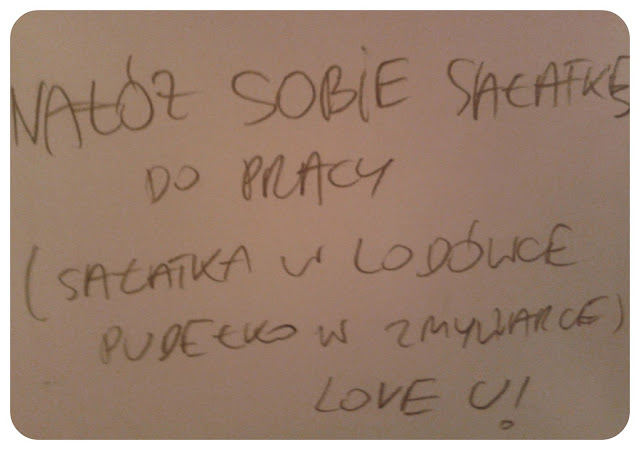 NAŁÓŻ SOBIE SAŁATKĘ
DO PRACY
(SAŁATKA W LODÓWCE
PUDEŁKO W ZMYWARCE)
LOVE U!